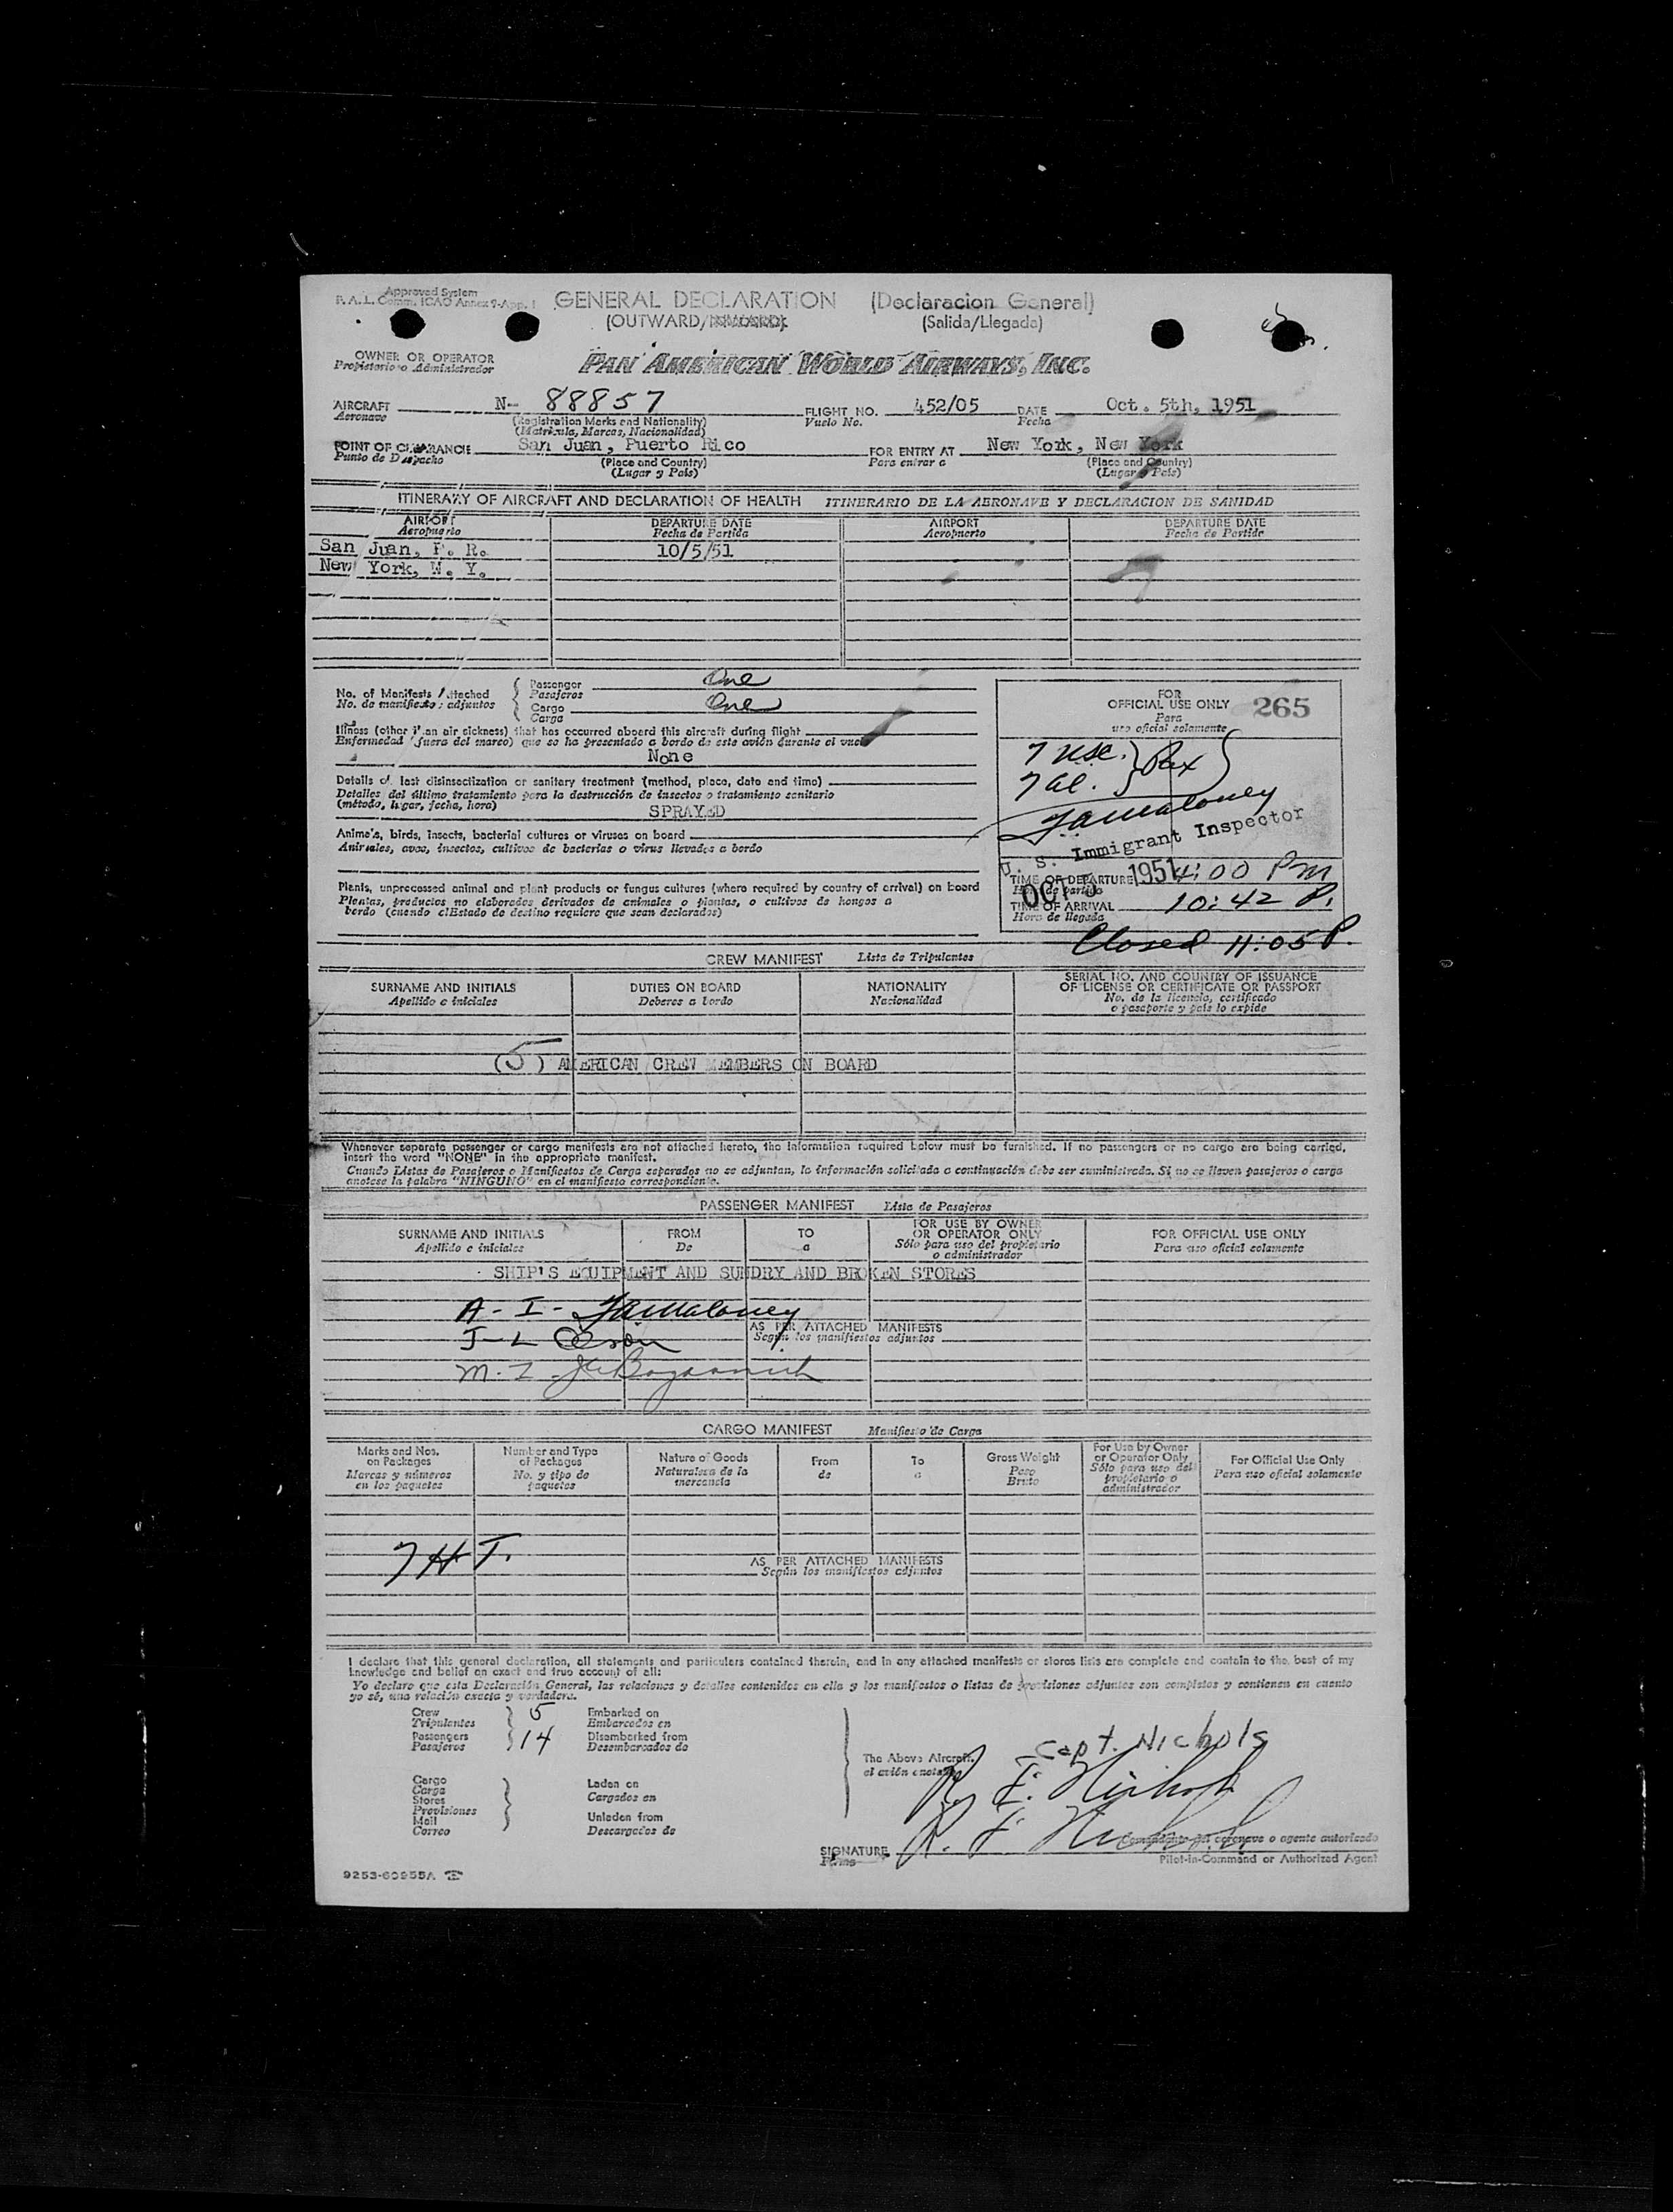 Approved System
P. A. L. Comm. ICAO Annex 9-App. 1
GENERAL DECLARATION (Declaracion General)
(OUTWARD/INWARD) (Salida/Llegada)
OWNER OR OPERATOR
Propietario o Administrador
PAN AMERICAN WORLD AIRWAYS, INC.
AIRCRAFT N- 88857 FLIGHT NO. 452/05 DATE Oct. 5th, 1951
Aeronave (Registration Marks and Nationality) Vuelo No. Fecha
(Matricula, Marcas, Nacionalidad)
POINT OF CLEARANCE San Juan, Puerto Rico FOR ENTRY AT New York, New York
Punto de Despacho (Place and Country) Para entrar a (Place and Country)
(Lugar y País) (Lugar y País)
ITINERARY OF AIRCRAFT AND DECLARATION OF HEALTH ITINERARIO DE LA AERONAVE Y DECLARACION DE SANIDAD
AIRPORT DEPARTURE DATE AIRPORT DEPARTURE DATE
Aeropuerto Fecha de Partida Aeropuerto Fecha de Partida
San Juan, P. R. 10/5/51
New York, N. Y.
No. of Manifests Attached
No. de manifiestos adjuntos
Passenger One
Pasajeros
Cargo One
Carga
Illness (other than air sickness) that has occurred aboard this aircraft during flight
Enfermedad (fuera del mareo) que se ha presentado a bordo de este avión durante el vuelo
None
Details of last disinsectization or sanitary treatment (method, place, date and time)
Detalles del último tratamiento para la destrucción de insectos o tratamiento sanitario
(método, lugar, fecha, hora)
SPRAYED
Animals, birds, insects, bacterial cultures or viruses on board
Animales, aves, insectos, cultivos de bacterias o virus llevados a bordo
Plants, unprocessed animal and plant products or fungus cultures (where required by country of arrival) on board
Plantas, productos no elaborados derivados de animales o plantas, o cultivos de hongos a
bordo (cuando el Estado de destino requiere que sean declarados)
FOR
OFFICIAL USE ONLY 265
Para
uso oficial solamente
7 USC. } Pax
7 al.
Maloney
U. S. Immigrant Inspector
OCT 5 1951
TIME OF DEPARTURE 4:00 PM
Hora de partida
TIME OF ARRIVAL 10:42 P.
Hora de llegada
Closed 11:05 P.
CREW MANIFEST Lista de Tripulantes
SURNAME AND INITIALS DUTIES ON BOARD NATIONALITY SERIAL NO. AND COUNTRY OF ISSUANCE
OF LICENSE OR CERTIFICATE OR PASSPORT
Apellido e iniciales Deberes a bordo Nacionalidad No. de la licencia, certificado
o pasaporte y país lo expide
(5) AMERICAN CREW MEMBERS ON BOARD
Whenever separate passenger or cargo manifests are not attached hereto, the information required below must be furnished. If no passengers or no cargo are being carried,
insert the word "NONE" in the appropriate manifest.
Cuando Listas de Pasajeros o Manifiestos de Carga separados no se adjuntan, la información solicitada a continuación debe ser suministrada. Si no se lleven pasajeros o carga
anotese la palabra "NINGUNO" en el manifiesto correspondiente.
PASSENGER MANIFEST Lista de Pasajeros
SURNAME AND INITIALS FROM TO FOR USE BY OWNER
OR OPERATOR ONLY FOR OFFICIAL USE ONLY
Apellido e iniciales De a Sólo para uso del propietario
o administrador Para uso oficial solamente
SHIP'S EQUIPMENT AND SUNDRY AND BROKEN STORES
A - I - Maloney
AS PER ATTACHED MANIFESTS
Según los manifiestos adjuntos
CARGO MANIFEST Manifiesto de Carga
Marks and Nos.
on Packages
Marcas y números
en los paquetes
Number and Type
of Packages
No. y tipo de
paquetes
Nature of Goods
Naturaleza de la
mercancia
From
de
To
a
Gross Weight
Peso
Bruto
For Use by Owner
or Operator Only
Sólo para uso del
propietario o
administrador
For Official Use Only
Para uso oficial solamente
7 H T.
AS PER ATTACHED MANIFESTS
Según los manifiestos adjuntos
I declare that this general declaration, all statements and particulars contained therein, and in any attached manifests or stores lists are complete and contain to the best of my
knowledge and belief an exact and true account of all:
Yo declaro que esta Declaración General, las relaciones y detalles contenidos en ella y los manifiestos o listas de provisiones adjuntos son completos y contienen en cuanto
yo sé, una relación exacta y verdadera.
Crew 5 Embarked on
Tripulantes Embarcados en
Passengers 14 Disembarked from
Pasajeros Desembarcados de
Cargo
Carga
Stores
Provisiones
Mail
Correo
Laden on
Cargados en
Unladen from
Descargados de
The Above Aircraft.
el avión
Capt. Nichols
R. F. Nichols
R. F. Nichols
Comandante del aeronave o agente autorizado
SIGNATURE
Firma
Pilot-in-Command or Authorized Agent
9253-60955A